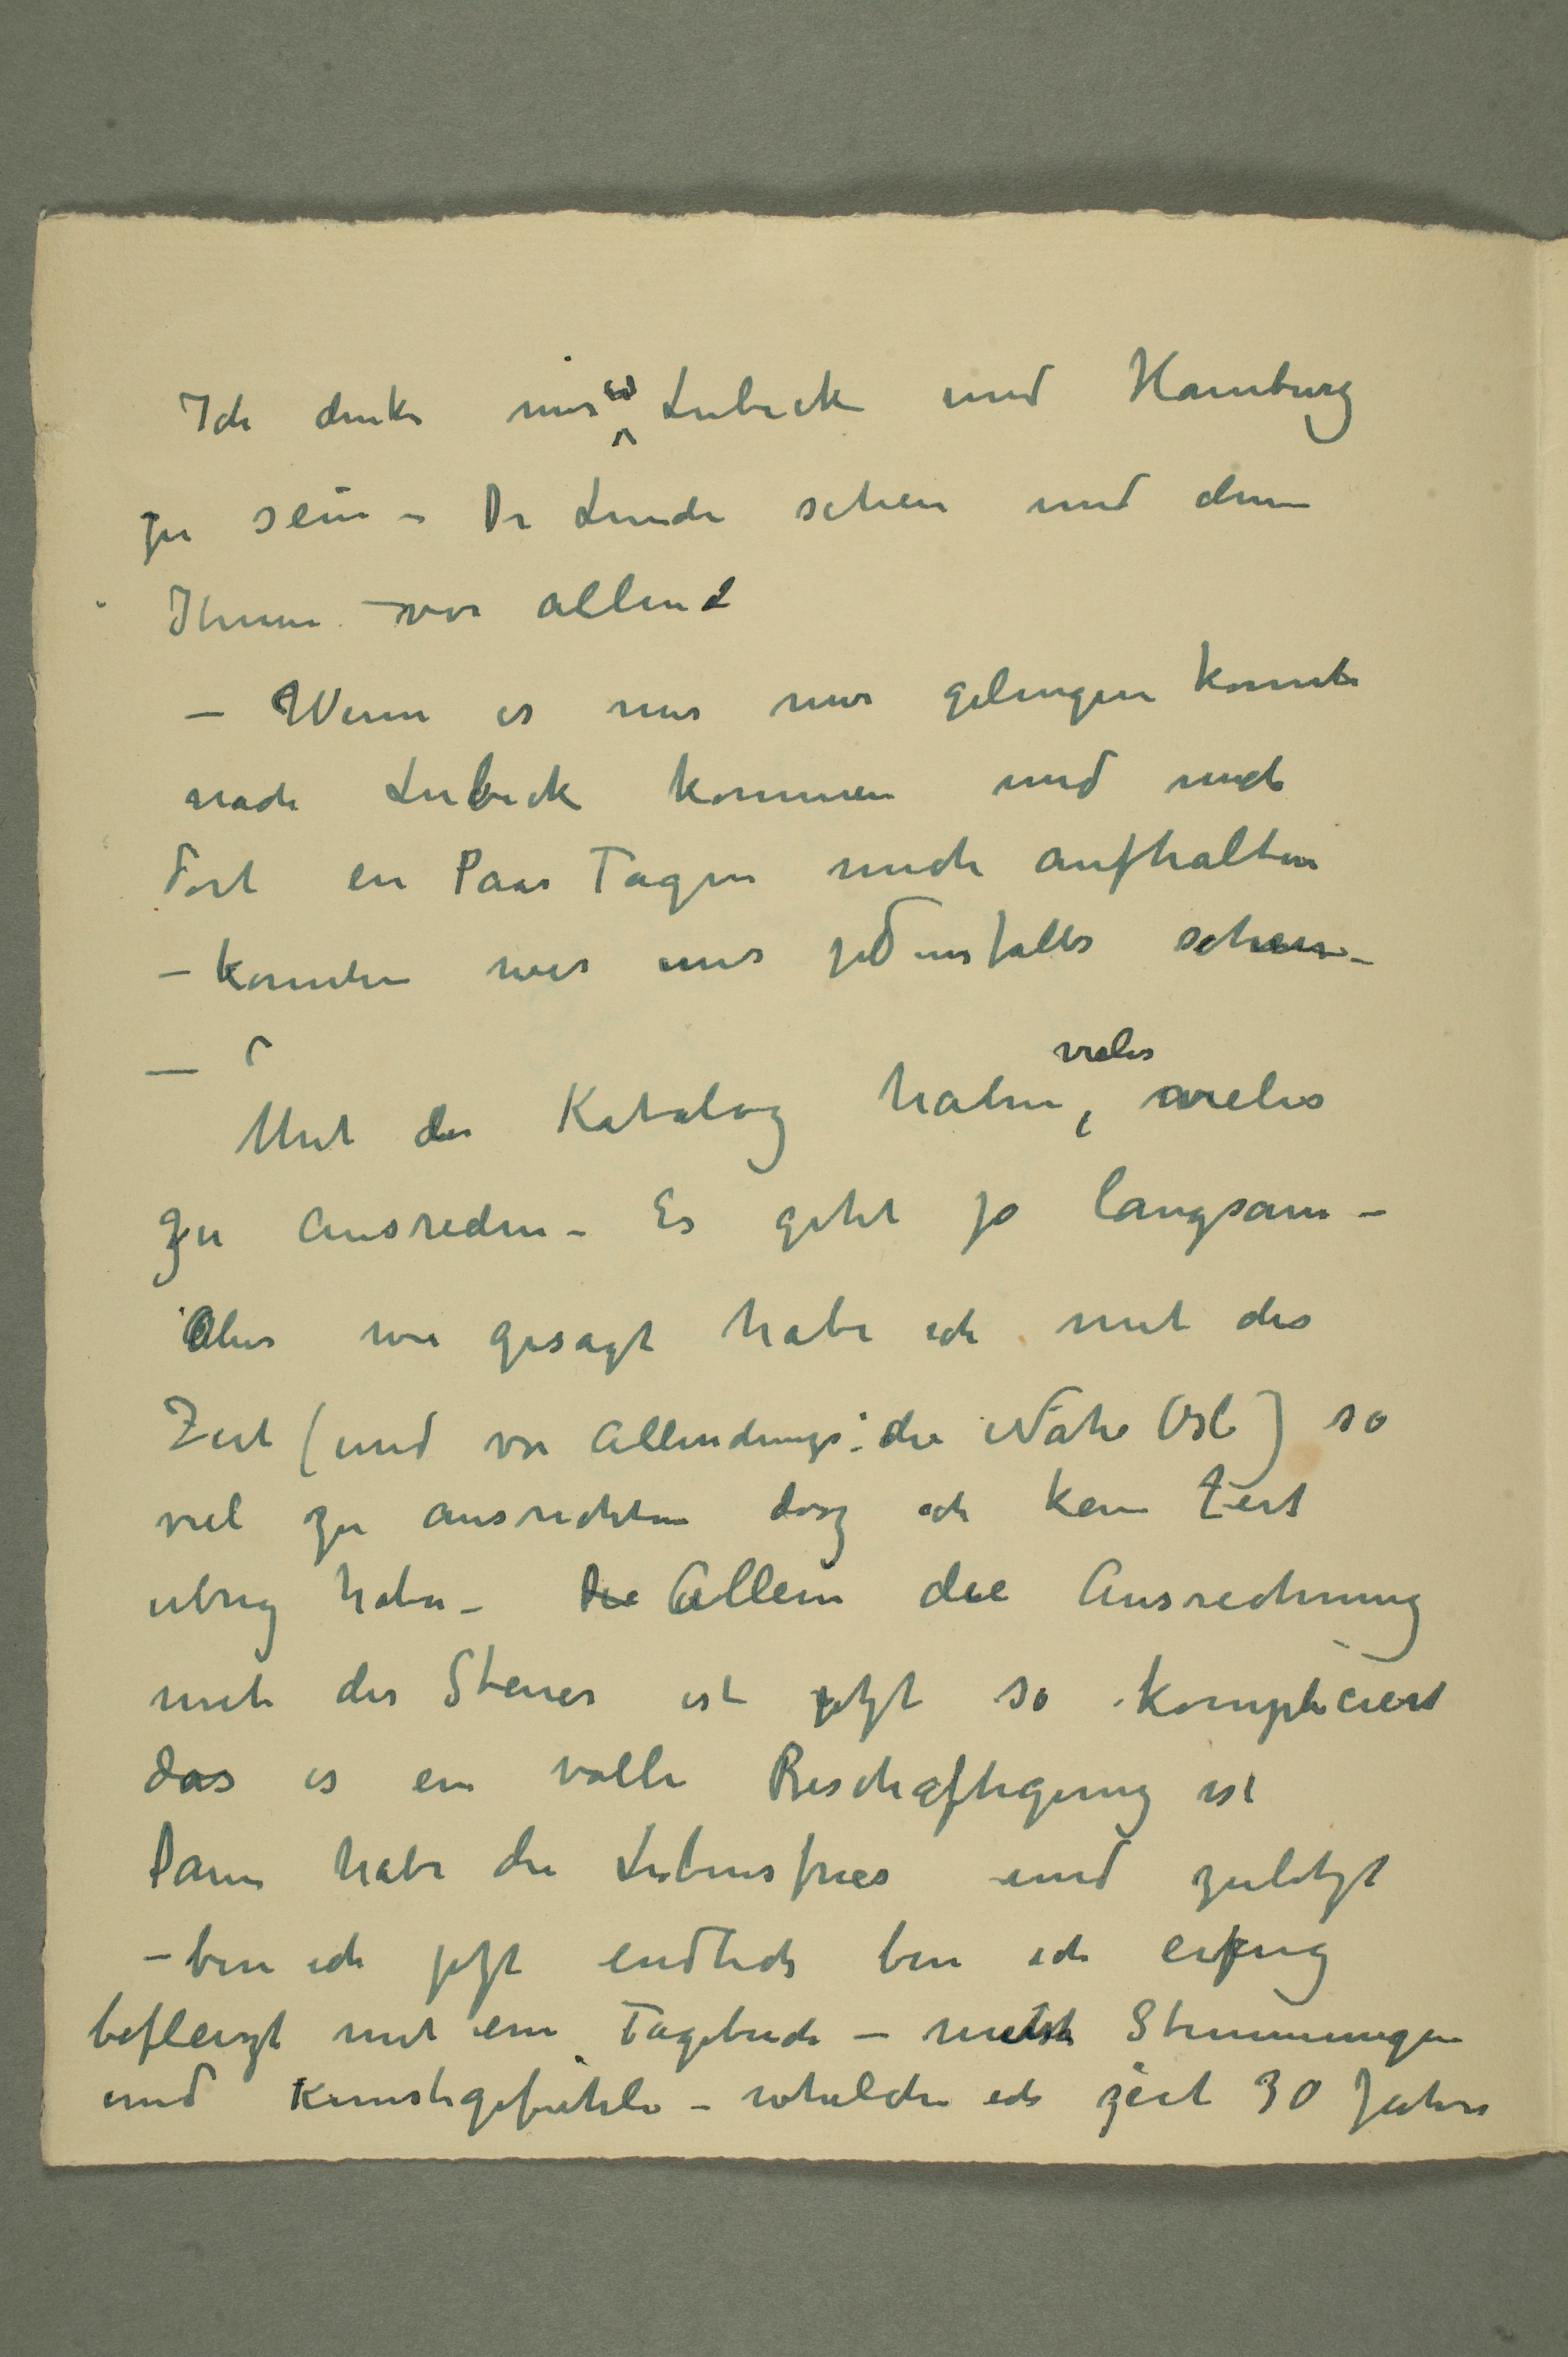 Ich denke mir in Lubeck und Hamburg
zu sein – Dr Linde sehen und dann
Ihnen – vor allend
– Wenn es mir nur gelingen konnte
nach Lubeck kommen und mich
Dort ein Paar Tagen mich aufhalten
– konnten wir uns jedenfalls sehen –
–
Mit der Katalog haben, vieles vieles
zu ausreden – Es geht ja langsam –
Aber wie gesagt habe ich mit der
Zeit (und vor Allendings: die Nähe Oslo) so
viel zu ausrichten dasz ich kein Zeit
ubrig habe – Die Allein die Ausrechnung
mit der Steuer ist jetzt so kompliciert
das es ein volle Beschäftigung ist
Dann habe die Lebensfries und zuletzt
– bin ich jetzt endlich bin ich eifrig
befleizt mit ein Tagebuch – meist Stimmungen
und Kunstgefühle – whelche ich zeit 30 Jahre